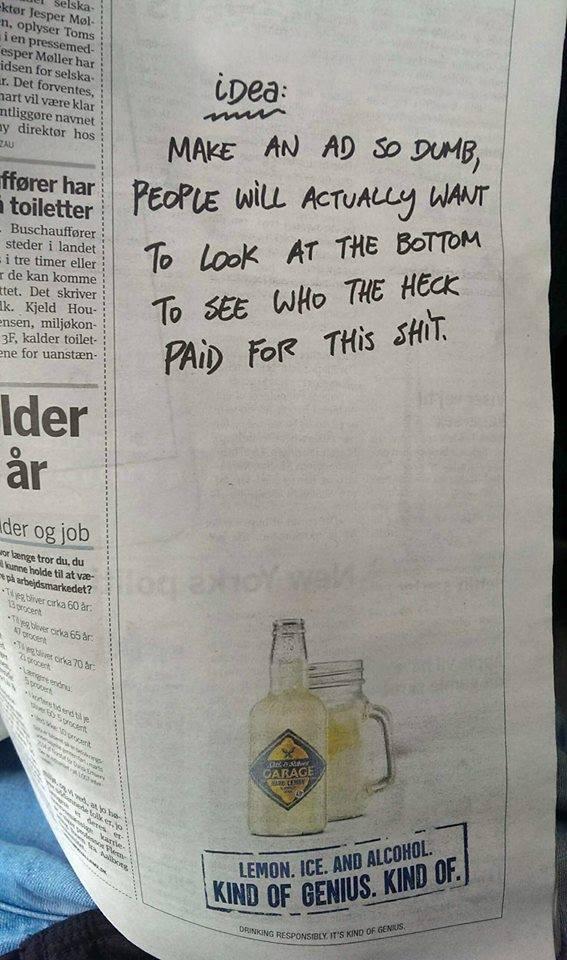 selska-
ektør Jesper Møl-
n, oplyser Toms
i en pressemed-
Jesper Møller har
idsen for selska-
r. Det forventes,
nart vil være klar
ntliggøre navnet
ny direktør hos
ZAU
ffører har
å toiletter
Buschauffører
steder i landet
i tre timer eller
r de kan komme
ttet. Det skriver
lk. Kjeld Hou-
ensen, miljøkon-
3F, kalder toilet-
ene for uanstæn-
lder
år
lder og job
vor længe tror du, du
l kunne holde til at væ-
e på arbejdsmarkedet?
• Til jeg bliver cirka 60 år:
13 procent
• Til jeg bliver cirka 65 år:
47 procent
• Til jeg bliver cirka 70 år:
21 procent
• Længere endnu:
5 procent
iDea:
MAKE AN AD SO DUMB,
PEOPLE WILL ACTUALLY WANT
To LOOK AT THE BOTTOM
To SEE WHO THE HECK
PAiD FOR THiS SHiT.
GARAGE
HARD LEMON
LEMON. ICE. AND ALCOHOL.
KIND OF GENIUS. KIND OF.
DRINKING RESPONSIBLY. IT'S KIND OF GENIUS.